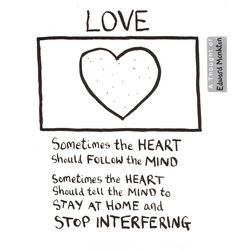 LOVE
A Thought of
Edward Monkton
Sometimes the HEART
should FOLLOW the MIND
Sometimes the HEART
Should tell the MIND to
STAY AT HOME and
STOP INTERFERING